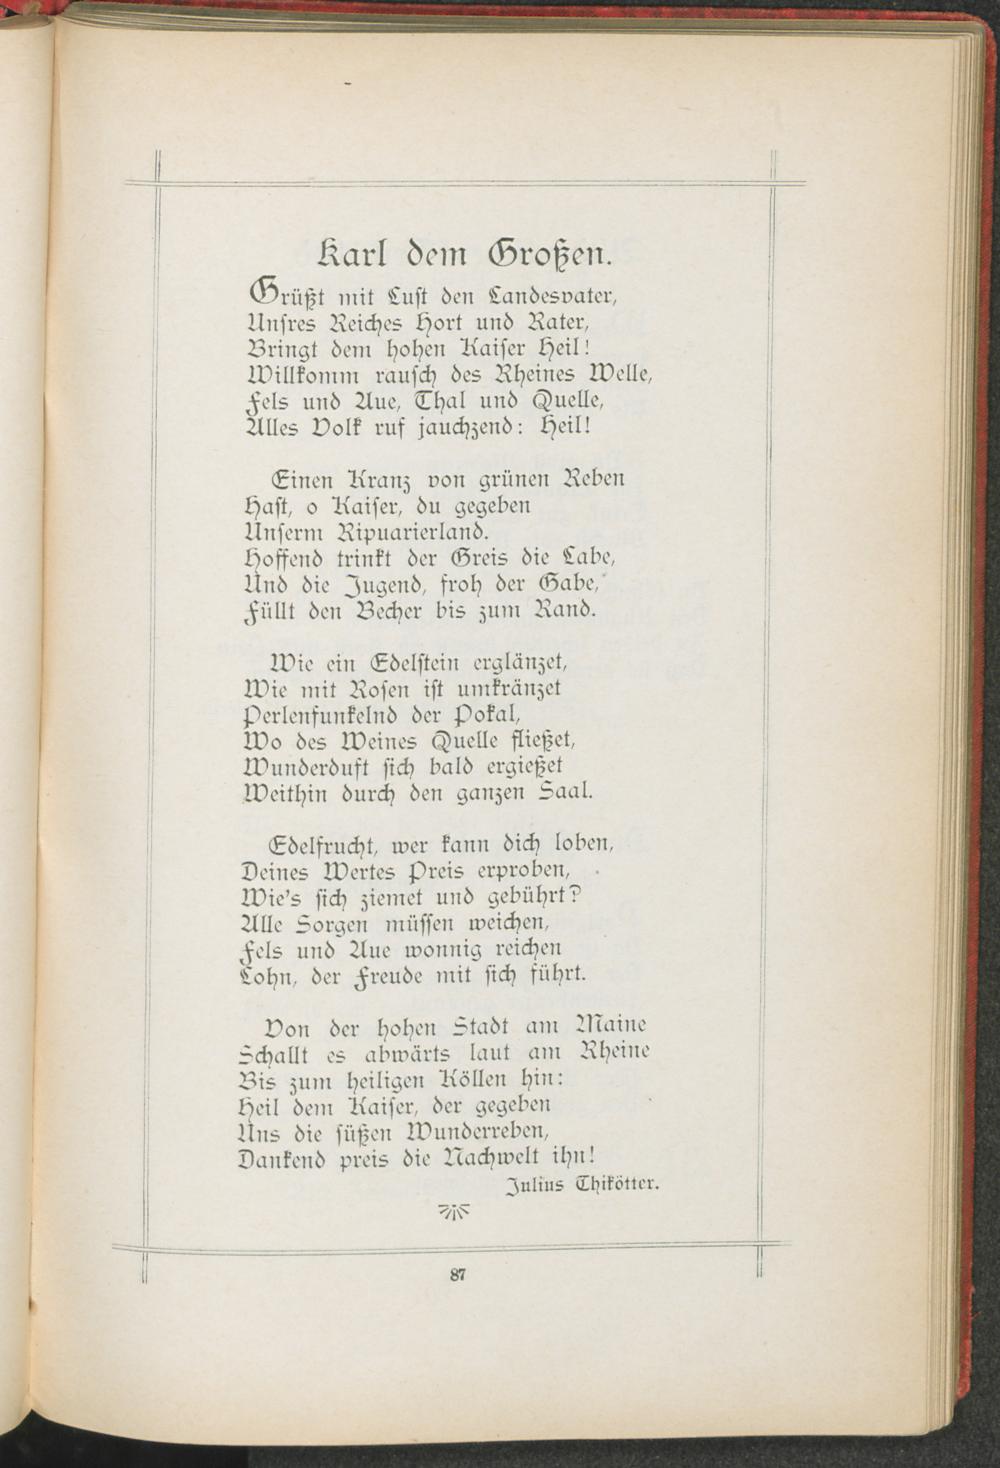 Karl dem Großen.
Grüßt mit Lust den Landesvater,
Unsres Reiches Hort und Rater,
Bringt dem hohen Kaiser Heil!
Willkomm rausch des Rheines Welle,
Fels und Aue, Thal und Quelle,
Alles Volk ruf jauchzend: Heil!
Einen Kranz von grünen Reben
Hast, o Kaiser, du gegeben
Unserm Ripuarierland.
Hoffend trinkt der Greis die Labe,
Und die Jugend, froh der Gabe,
Füllt den Becher bis zum Rand.
Wie ein Edelstein erglänzet,
Wie mit Rosen ist umkränzet
Perlenfunkelnd der Pokal,
Wo des Weines Quelle fließet,
Wunderduft sich bald ergießet
Weithin durch den ganzen Saal.
Edelfrucht, wer kann dich loben,
Deines Wertes Preis erproben,
Wie's sich ziemet und gebührt?
Alle Sorgen müssen weichen,
Fels und Aue wonnig reichen
Lohn, der Freude mit sich führt.
Von der hohen Stadt am Maine
Schallt es abwärts laut am Rheine
Bis zum heiligen Köllen hin:
Heil dem Kaiser, der gegeben
Uns die süßen Wunderreben,
Dankend preis die Nachwelt ihn!
Julius Thikötter.
87